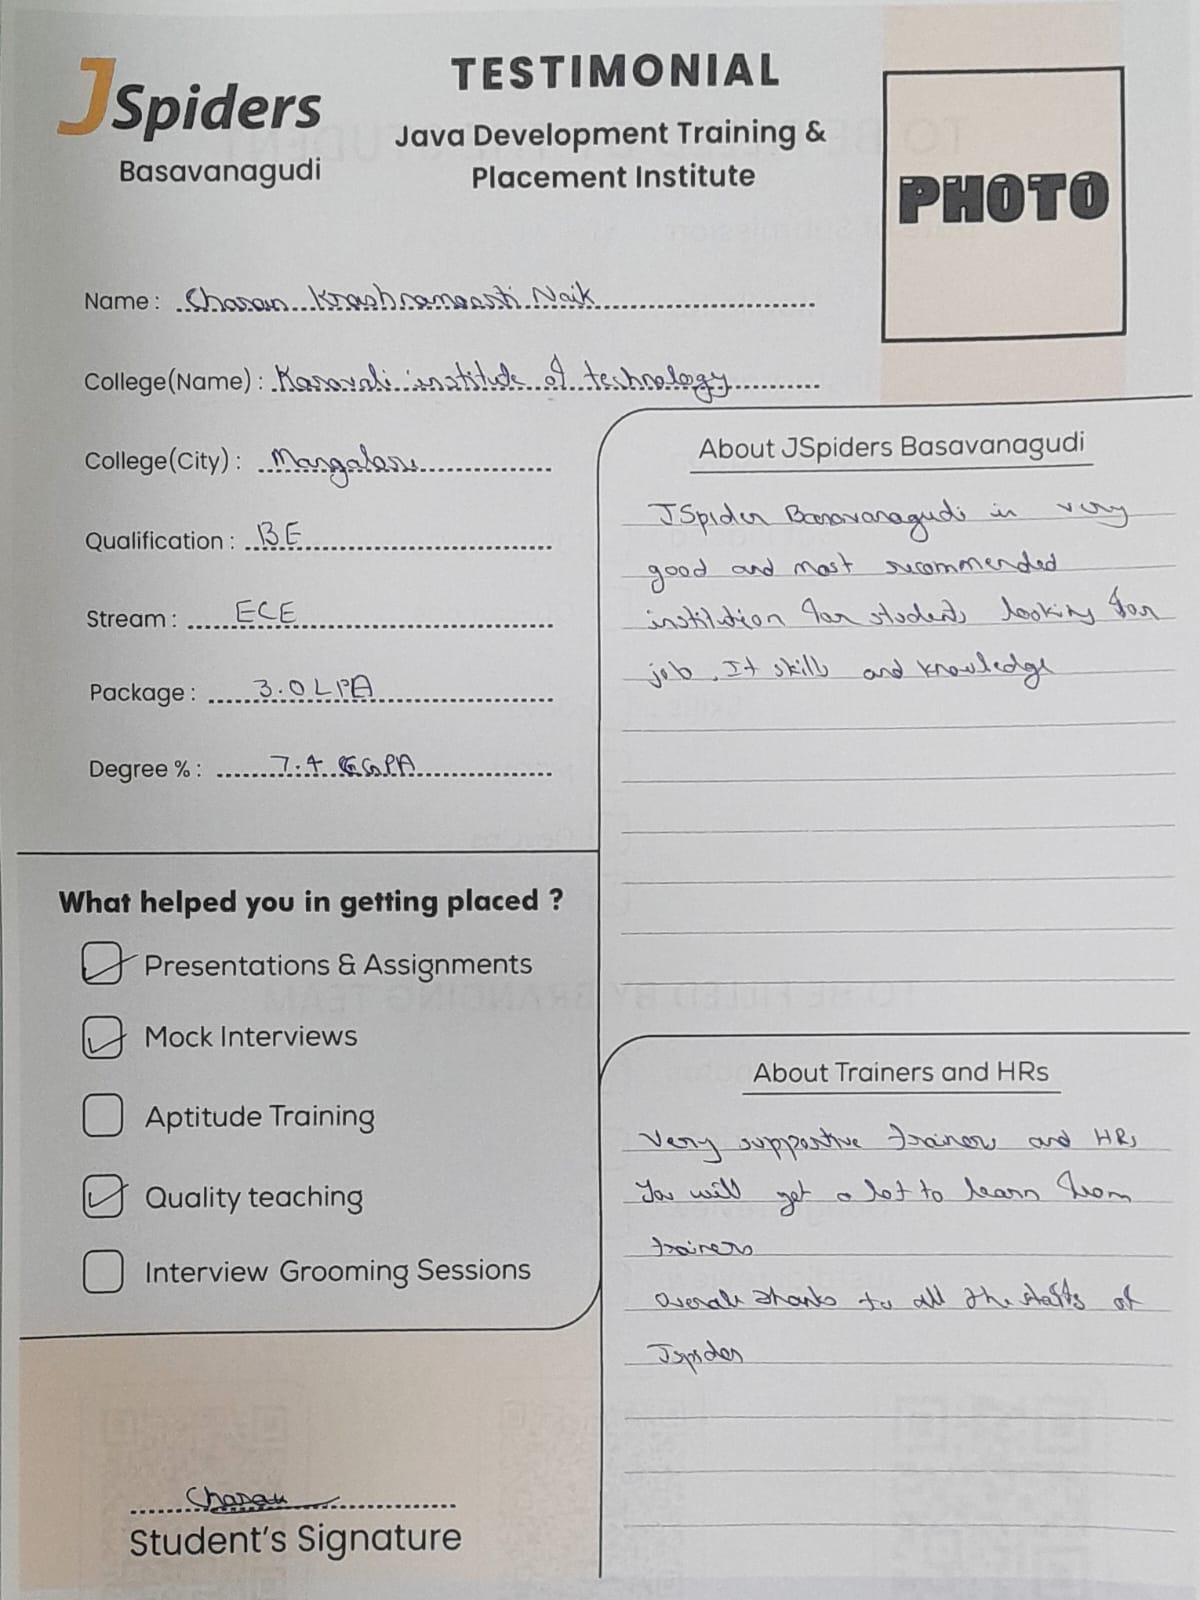 JSpiders
Basavanagudi
TESTIMONIAL
Java Development Training &
Placement Institute
PHOTO
Name : Charan Krashnamoorti Naik
College(Name) : Karavali institute of technology
College(City) : Mangalore
Qualification : BE
Stream : ECE
Package : 3.0 LPA
Degree % : 7.4 CGPA
What helped you in getting placed ?
Presentations & Assignments
Mock Interviews
Aptitude Training
Quality teaching
Interview Grooming Sessions
Charan
Student's Signature
About JSpiders Basavanagudi
JSpider Basavanagudi is very
good and most recommended
institution for students looking for
job . It skills and knowledge
About Trainers and HRs
Very supportive trainers and HRs
You will get a lot to learn from
trainers
Overall thanks to all the staffs of
Jspider